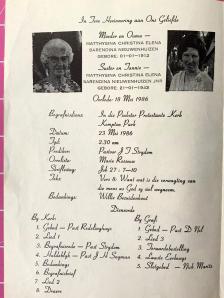 In Teer Herinnering aan Ons Geliefde
Moeder en Ouma —
MATTHYSINA CHRISTINA ELENA
BARENDINA NIEUWENHUIZEN
GEBORE: 01-01-1913
Suster en Tannie —
MATTHYSINA CHRISTINA ELENA
BARENDINA NIEUWENHUIZEN JNR
GEBORE: 21-01-1943
Oorlede 18 Mei 1986
Begrafnisdiens: In die Pinkster Protestante Kerk
Kempton Park
Datum: 23 Mei 1986
Tyd: 2.30 nm
Prediker: Pastoor J T Strydom
Orreliste: Marie Rossouw
Skriflesing: Job 27 : 7-10
Teks: Vers 8: Want wat is die verwagting van
die mens as God sy siel wegneem.
Bedankings: Willie Bezuidenhout
Diensorde
By Kerk:
1. Gebed — Past Redelinghuys
2. Lied 1
3. Begrafnisrede — Past Strydom
4. Huldeblyk — Past J H Segman
5. Bedankings
6. Begrafnisbrief
7. Lied 2
8. Draers
By Graf:
1. Gebed — Past D Nel
2. Lied 3
3. Teraardebestelling
4. Laaste Eerbewys
5. Slotgebed — Nick Maritz